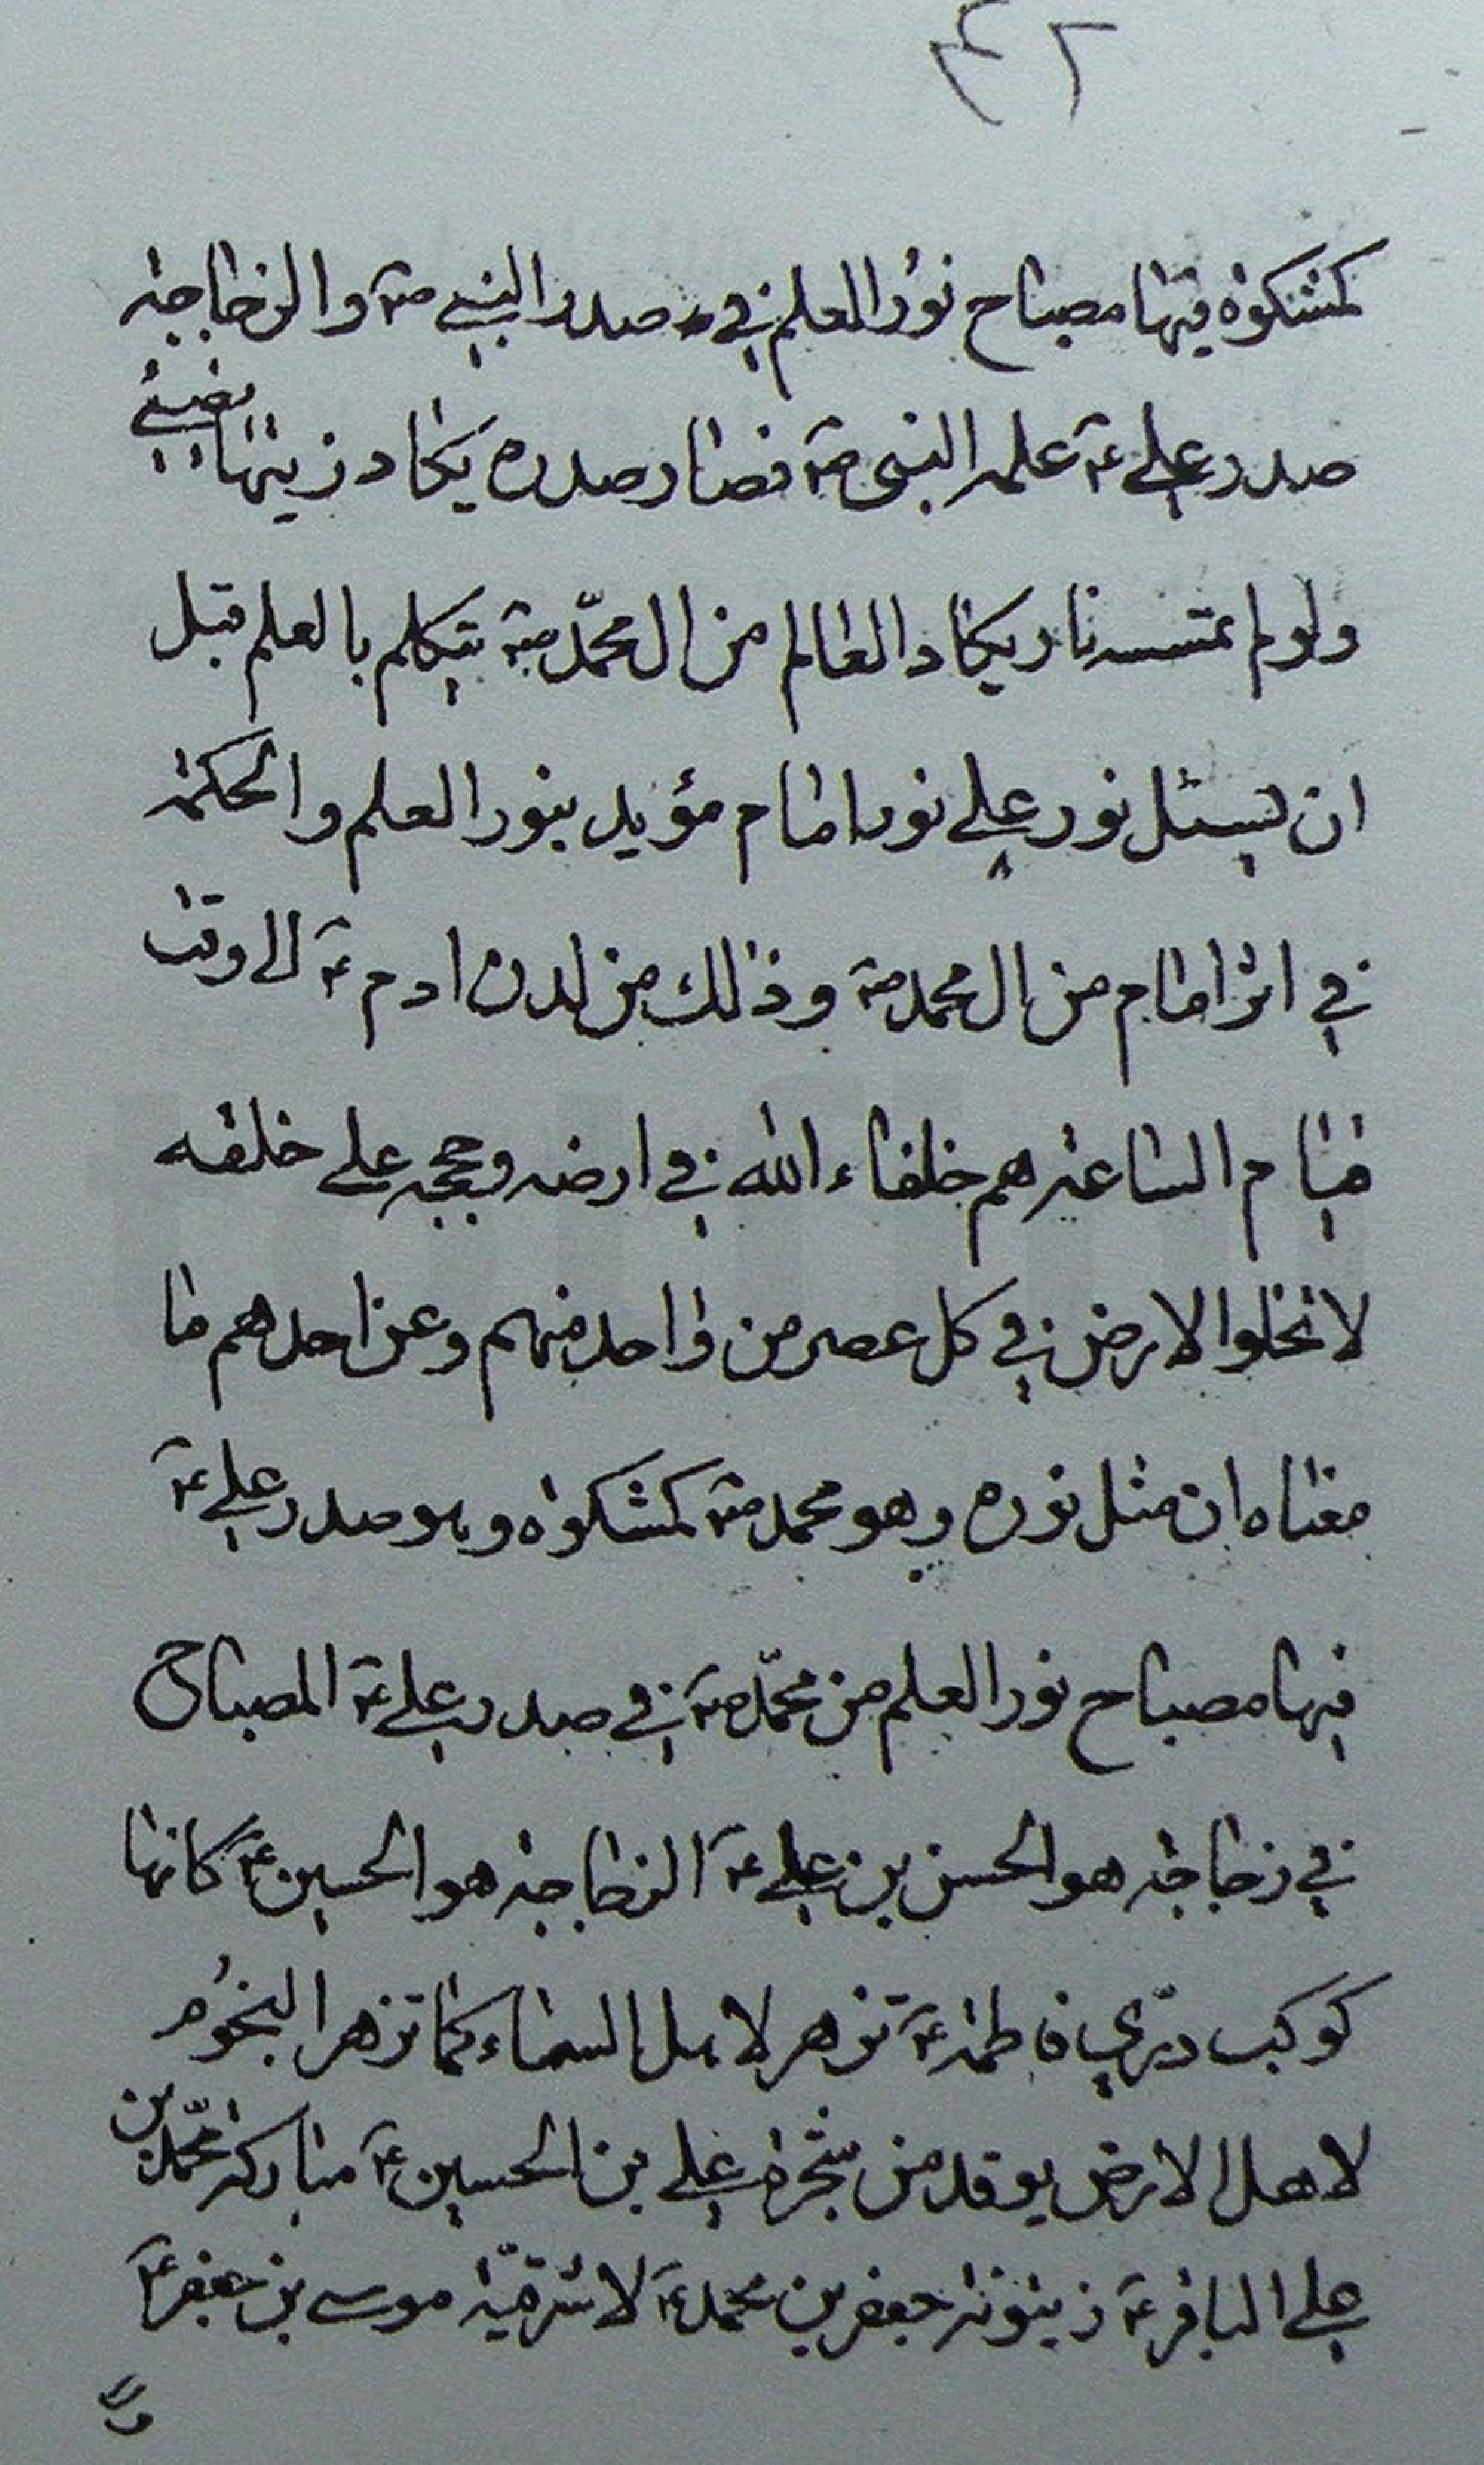 ۴۲
كمشكوة فيها مصباح نور العلم في صدر النبي صم والزجاجة
صدر علي عم علمه النبي صم فصار صدره يكاد زيتها يضيئ
ولو لم تمسسه نار يكاد العالم من ال محمّد صم يتكلم بالعلم قبل
ان يسئل نور علي نور امام مؤيد بنور العلم والحكمة
في اثر امام من ال محمد صم وذلك من لدن ادم عم الي وقت
قيام الساعة هم خلفاء الله في ارضه وحججه علي خلقه
لا تخلوا الارض في كل عصر من واحد منهم وعن احدهم ما
معناه ان مثل نوره وهو محمد صم كمشكوة وهو صدر علي عم
فيها مصباح نور العلم من محمّد صم في صدر علي عم المصباح
في زجاجة هو الحسن بن علي عم الزجاجة هو الحسين عم كانها
كوكب درّي فاطمة عم تزهر لاهل السماء كما تزهر النجوم
لاهل الارض يوقد من شجرة علي بن الحسين عم مباركة محمّد بن
علي الباقر عم زيتونة جعفر بن محمد عم لا شرقيّة موسي بن جعفر عم
ولا